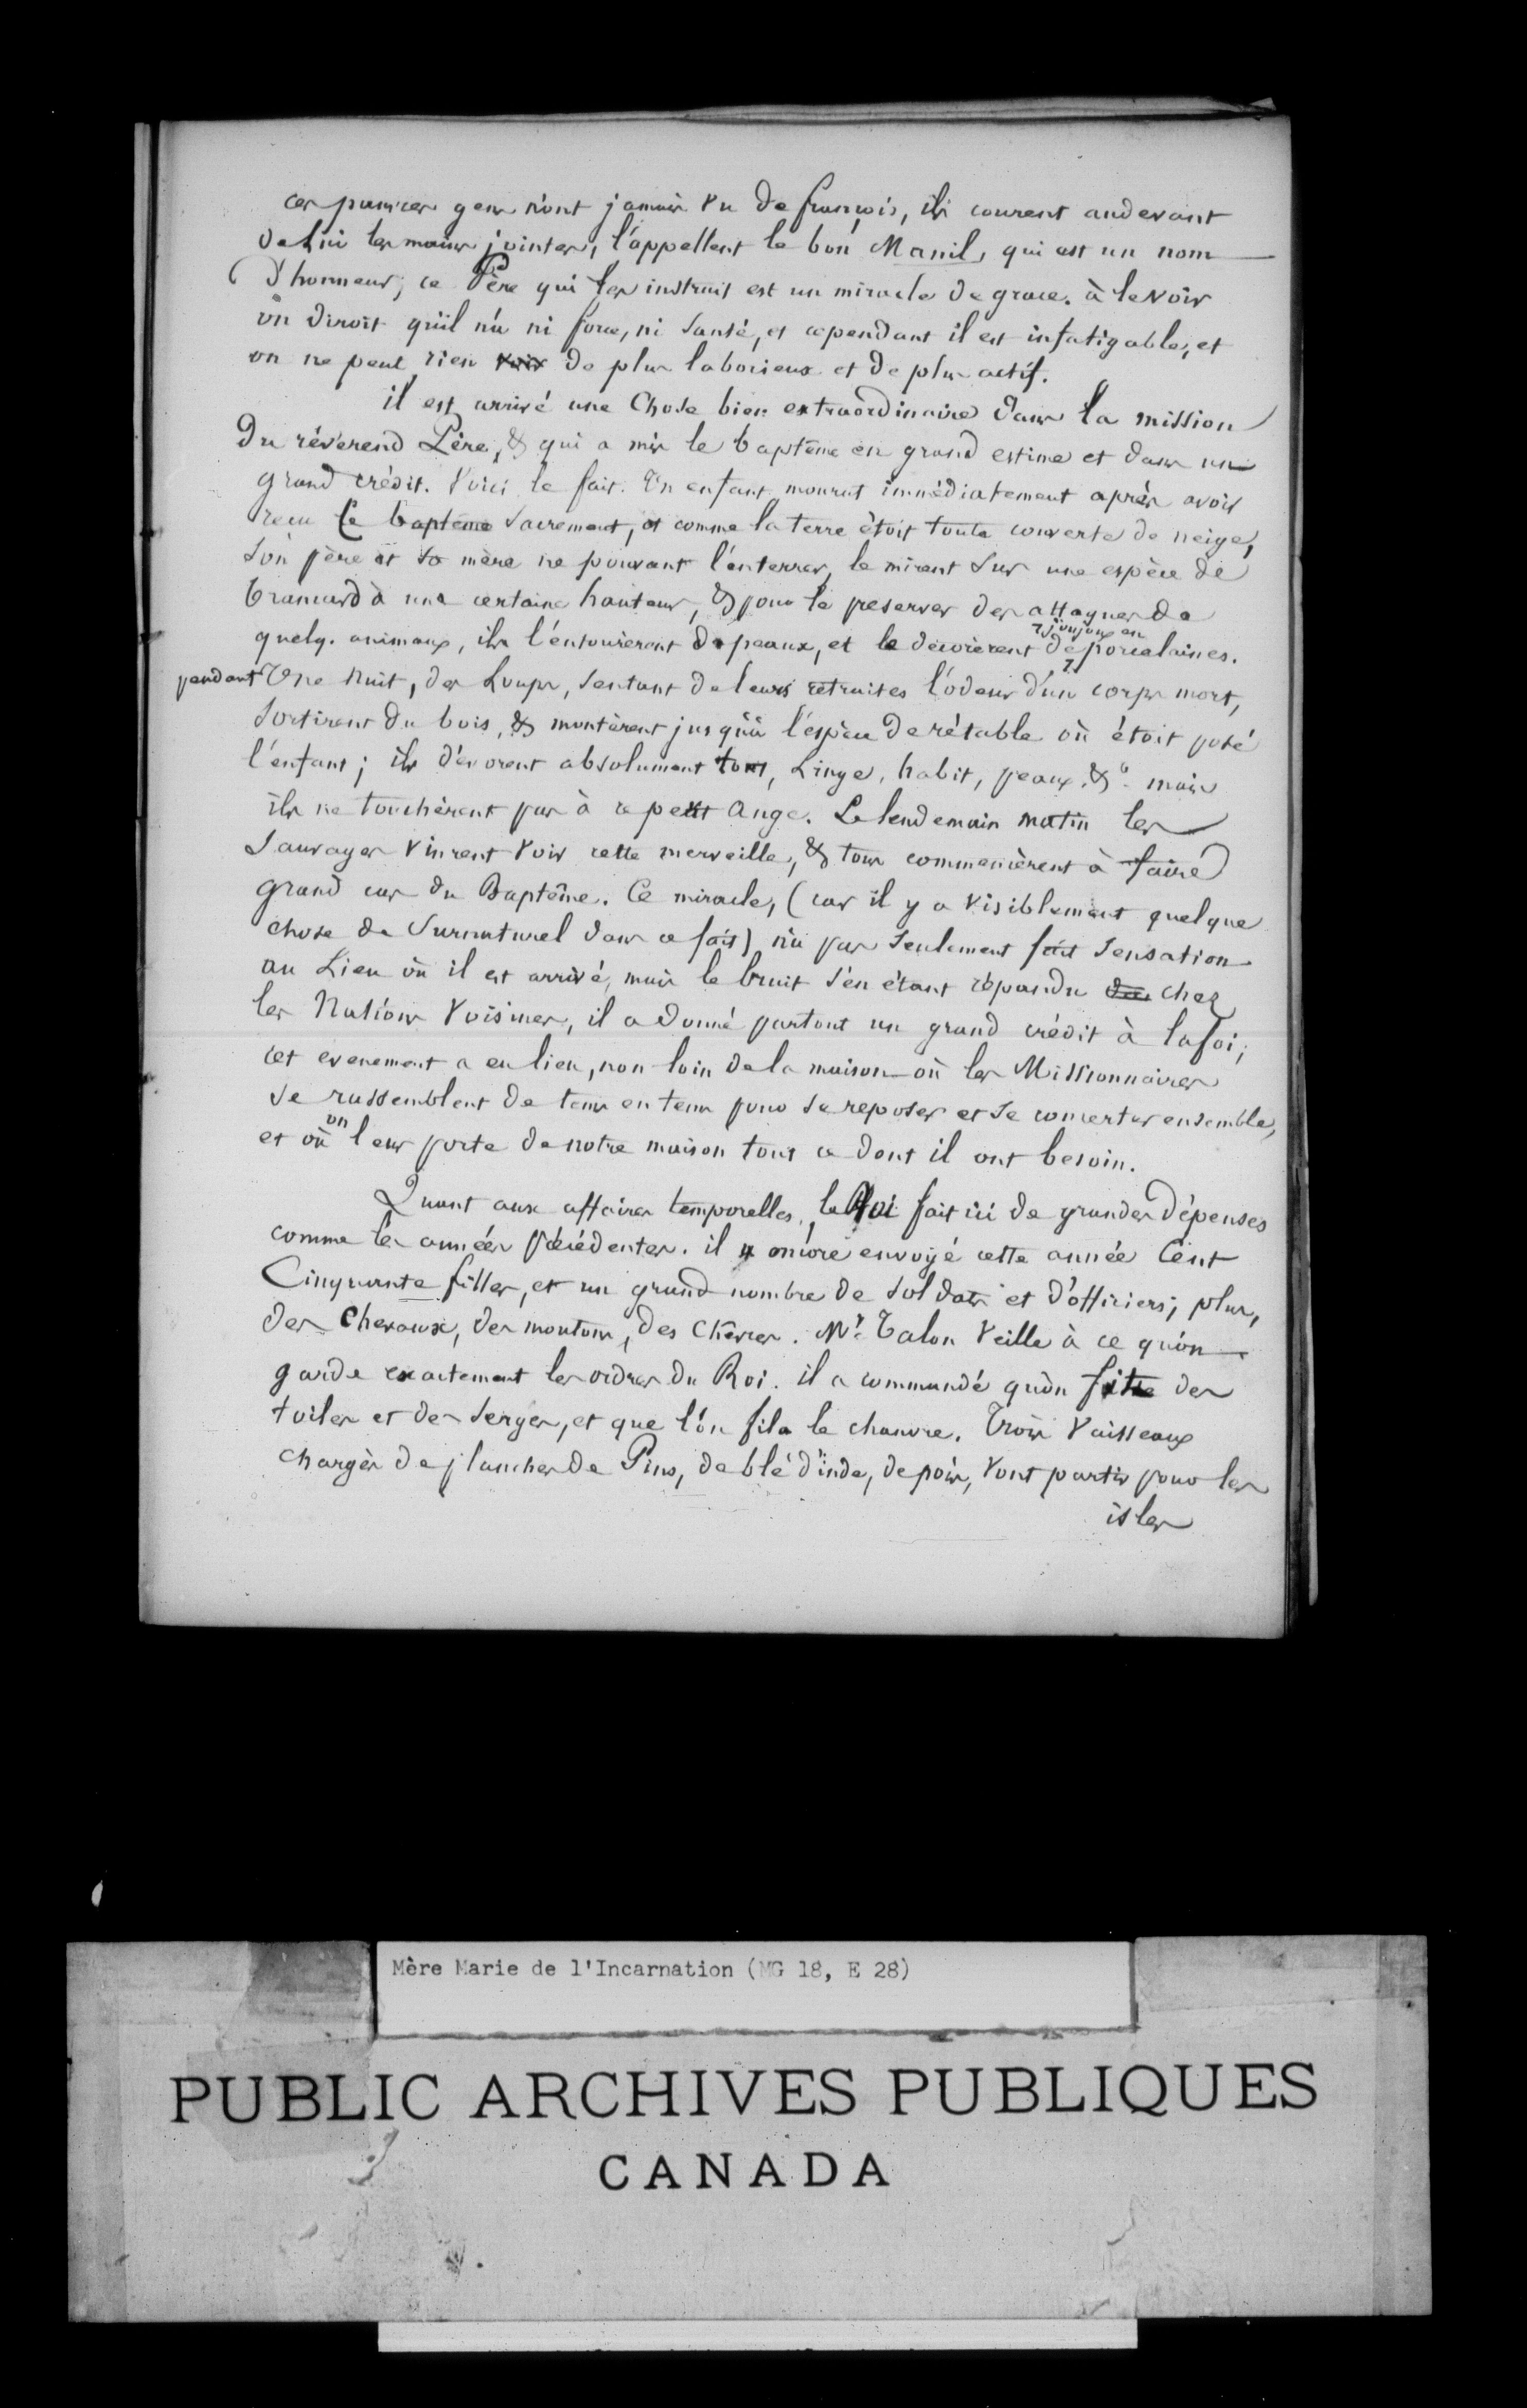 ces pauvres gens n'ont jamais vu de françois, ils courent audevant
de lui les mains jointes, l'appellent le bon Manil, qui est un nom
d'honneur; ce Père qui les instruit est un miracle de grace. à le voir
on diroit qu'il n'a ni force, ni santé, et cependant il est infatigable, et
on ne peut rien voir de plus laborieux et de plus actif.
il est arrivé une Chose bien extraordinaire dans la mission
du révérend Père, & qui a mis le baptême en grand estime et dans un
grand crédit. Voici le fait. Un enfant mourut immédiatement après avoir
recu Ce baptême Sacrement, et comme la terre étoit toute couverte de neige,
son père et sa mère ne pouvant l'enterrer, le mirent sur une espèce de
brancard à une certaine hauteur, & pour le preserver des attaques de
quelq. animaux, ils l'entourèrent de peaux, et le décorèrent de porcelaines.
joujoux en
pendant Une Nuit, des Loups, sentant de leurs retraites l'odeur d'un corps mort,
sortirent du bois, & montèrent jusqu'à l'espèce de rétable où étoit posé
l'enfant; ils dévorent absolument tout, Linge, habit, peaux, &c mais
ils ne touchèrent pas à ce petit Ange. Le lendemain matin les
Sauvages vinrent voir cette merveille, & tous commencèrent à faire
grand cas du Baptême. Ce miracle, (car il y a visiblement quelque
chose de Surnaturel dans ce fait) n'a pas seulement fait sensation
au Lieu où il est arrivé, mais le bruit s'en étant répandu chez
les Nations Voisines, il a donné partout un grand crédit à la foi;
cet evenement a eu lieu, non loin de la maison où les Missionnaires
se rassemblent de tems en tems pour se reposer et se concerter ensemble,
et où on leur porte de notre maison tout ce dont il ont besoin.
Quant aux affaires temporelles, le Roi fait ici de grandes dépenses
comme les années précédentes. il a encore envoyé cette année Cent
Cinquante filles, et un grand nombre de soldats et d'officiers; plus,
des Chevaux, des moutons, des Chèvres. Mr. Talon Veille à ce qu'on
garde exactement les ordres du Roi. il a commandé qu'on fit des
toiles et des serges, et que l'on fila le chanvre. Trois Vaisseaux
chargés de planches de Pins, de blé d'inde, de pois, vont partir pour les
isles
Mère Marie de l'Incarnation (MG 18, E 28)
PUBLIC ARCHIVES PUBLIQUES
CANADA